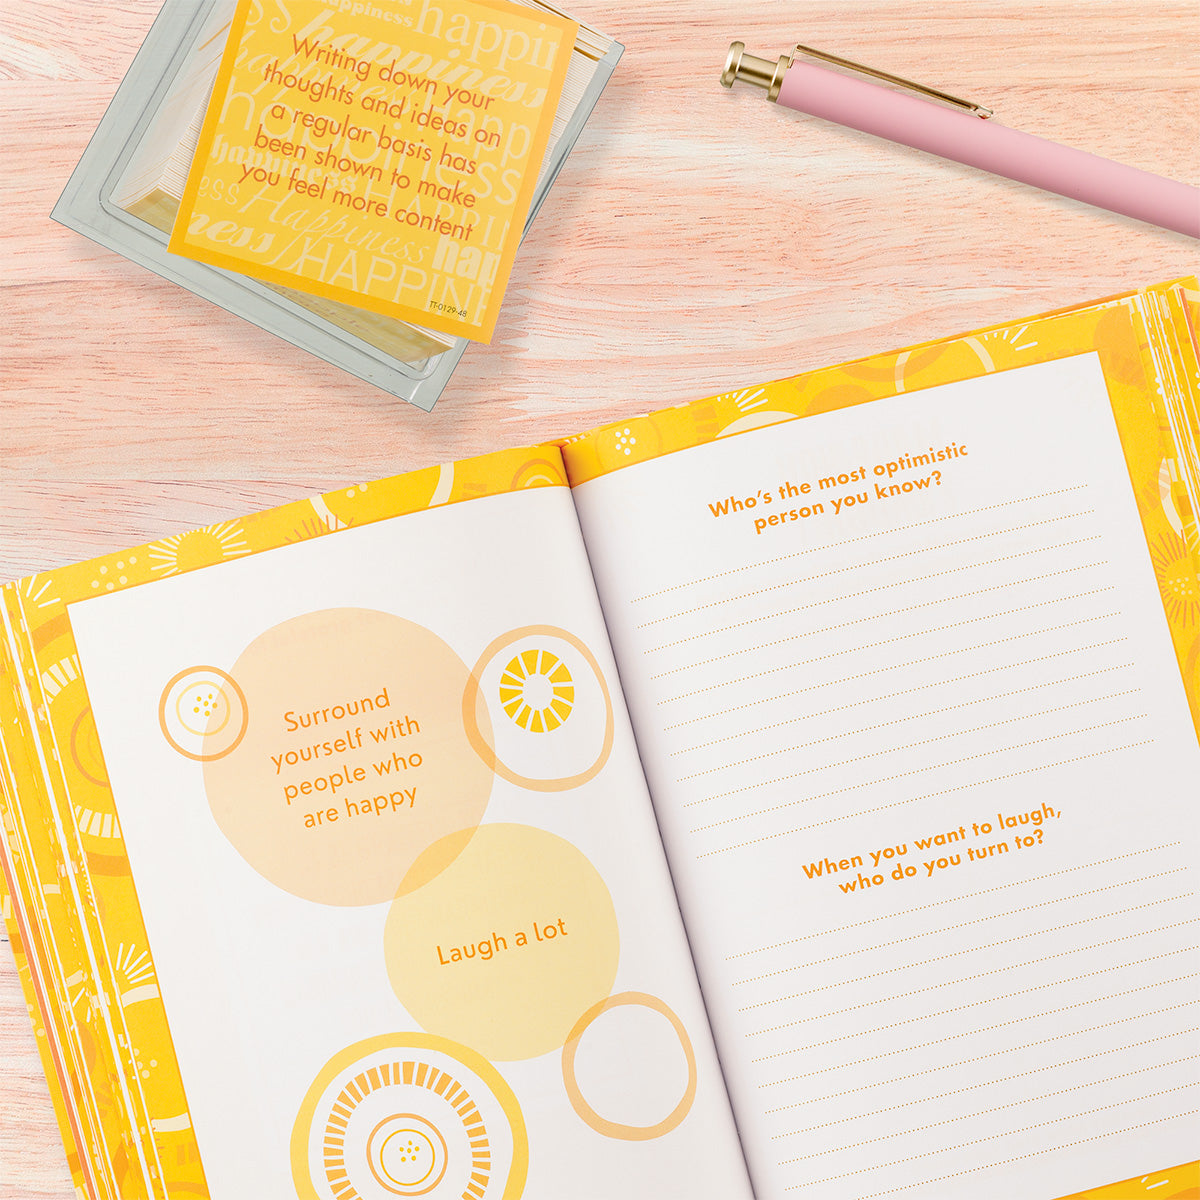 Writing down your
thoughts and ideas on
a regular basis has
been shown to make
you feel more content
TT-0129-48
happiness
happin
happiness
happiness
Happiness
ness
HAPPIN
hap
Who's the most optimistic
person you know?
Surround
yourself with
people who
are happy
Laugh a lot
When you want to laugh,
who do you turn to?